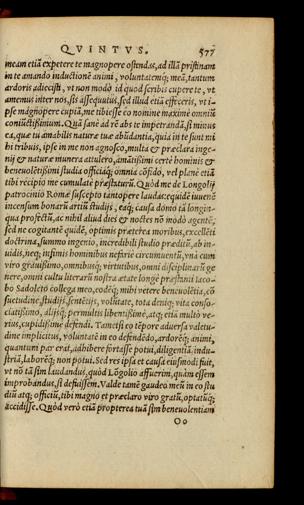 QVINTVS. 577
meam etiã expetere te magnopere ostẽdisses, ad illã pristinam
in te amando inductionẽ animi, voluntatemq; meã, tantum
ardoris adiecisti, vt non modò id quod scribis cupere te, vt
amemus inter nos, sis assequutus, sed illud etiã effeceris, vt i-
pse magnopere cupiã, me tibi esse eo nomine maximè omniũ
coniũctissimum. Quã sanè ad rẽ abs te impetrandã, si minus
ea, quæ tu amabilis naturæ tuæ abũdantia, quia in te sunt mi
hi tribuis, ipse in me non agnosco, multa & præclara inge-
nij & naturæ munera attulero, amãtissimi certè hominis &
beneuolẽtissimi studia officiaq; omnia cõfido, vel planè etiã
tibi recipio me cumulatè præstaturũ. Quòd me de Longolij
patrocinio Romæ suscepto tantopere laudas: equidẽ iuuenẽ
incensum bonarũ artiũ studijs, eaq; causa domo tã longin-
qua profectũ, ac nihil aliud dies & noctes nõ modò agentẽ,
sed ne cogitantẽ quidẽ, optimis præterea moribus, excellẽti
doctrina, summo ingenio, incredibili studio præditũ, ab in-
uidis, neq; infimis hominibus nefariè circumuentũ, vnà cum
viro grauissimo, omnibusq; virtutibus, omni disciplinarũ ge
nere, omni cultu literarũ nostra ætate longè præstanti Iaco-
bo Sadoleto collega meo, eodẽq; mihi vetere beneuolẽtia, cõ
suetudine, studijs, sentẽtijs, volũtate, tota deniq; vita conso-
ciatissimo, alijsq; permultis libentissimè, atq; etiã multò ve-
rius, cupidissimè defendi. Tametsi eo tẽpore aduersa valetu-
dine implicitus, voluntatẽ in eo defendẽdo, ardorẽq; animi,
quantum par erat, adhibere fortasse potui, diligentiã, indu-
striã, laborẽq; non potui. Sed res ipsa et causa eiusmodi fuit,
vt nõ tã sim laudandus, quòd Lõgolio affuerim, quàm essem
improbandus, si defuissem. Valde tamẽ gaudeo meũ in eo stu
diũ atq; officiũ, tibi magno et præclaro viro gratũ, optatũq;
accidisse. Quòd verò etiã propterea tuã sim beneuolentiam
Oo